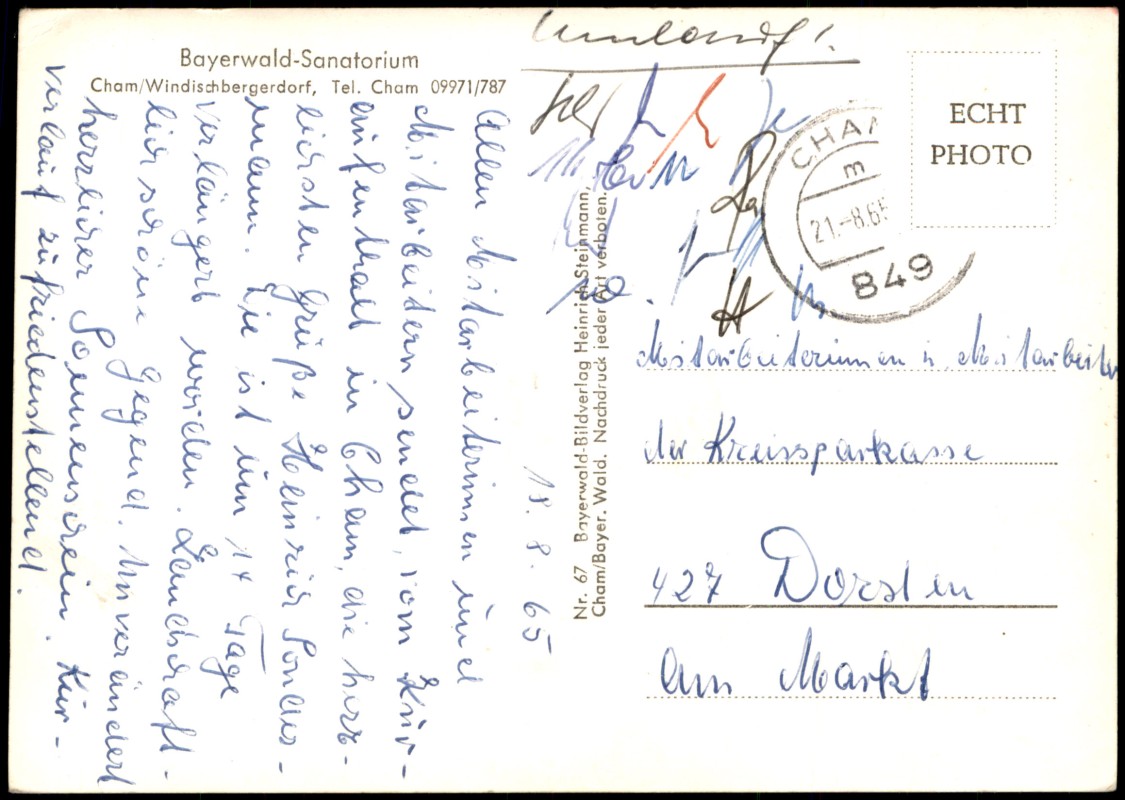 Bayerwald-Sanatorium
Cham/Windischbergerdorf, Tel. Cham 09971/787
Umlauf!
ECHT
PHOTO
CHAM
m
21.-8.65
849
18. 8. 65
Allen Mitarbeiterinnen und
Mitarbeitern sendet, vom Kur-
aufenthalt in Cham, die herz-
lichsten Grüße Heinrich Sonders-
mann. Sie ist um 14 Tage
verlängert worden. Landschaft-
lich schöne Gegend. Unverändert
herrlicher Sonnenschein. Kur-
verlauf zufriedenstellend.
Nr. 67 Bayerwald-Bildverlag Heinrich Steinmann,
Cham/Bayer. Wald. Nachdruck jeder Art verboten.
Mitarbeiterinnen u. Mitarbeiter
der Kreissparkasse
427 Dorsten
Am Markt